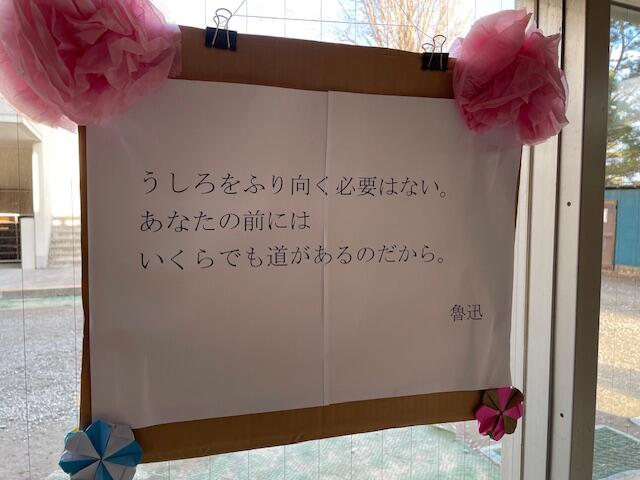 うしろをふり向く必要はない。
あなたの前には
いくらでも道があるのだから。
魯迅